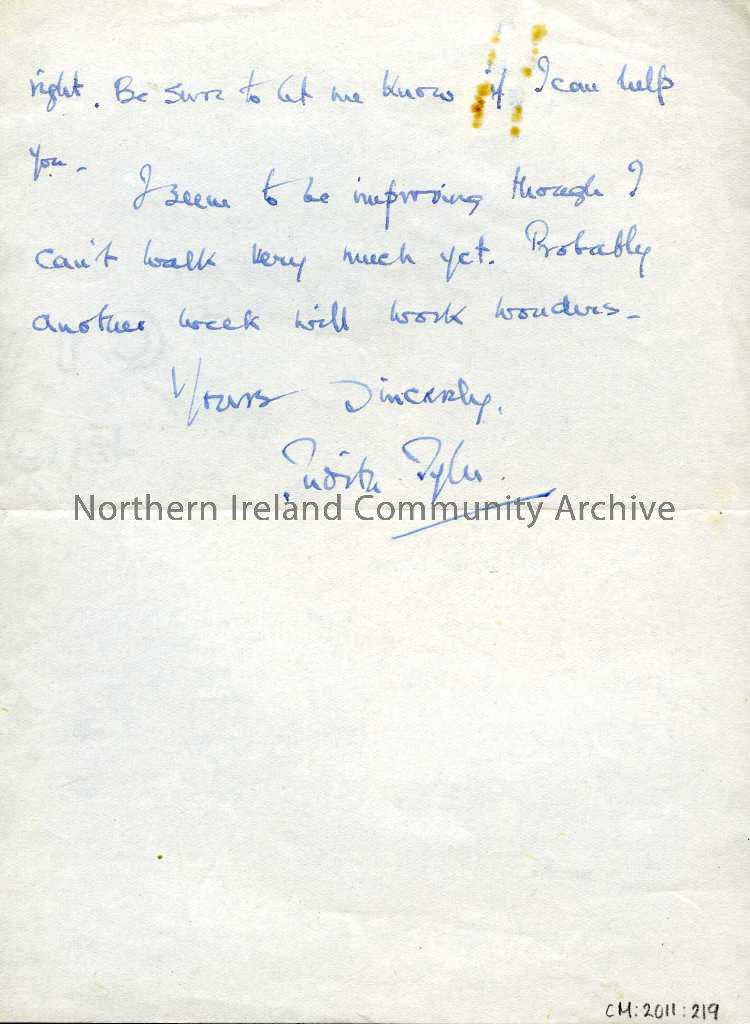 right. Be sure to let me know if I can help
you.
I seem to be improving though I
can't walk very much yet. Probably
another week will work wonders.
Yours Sincerely,
Judith Tyler
Northern Ireland Community Archive
CM:2011:219